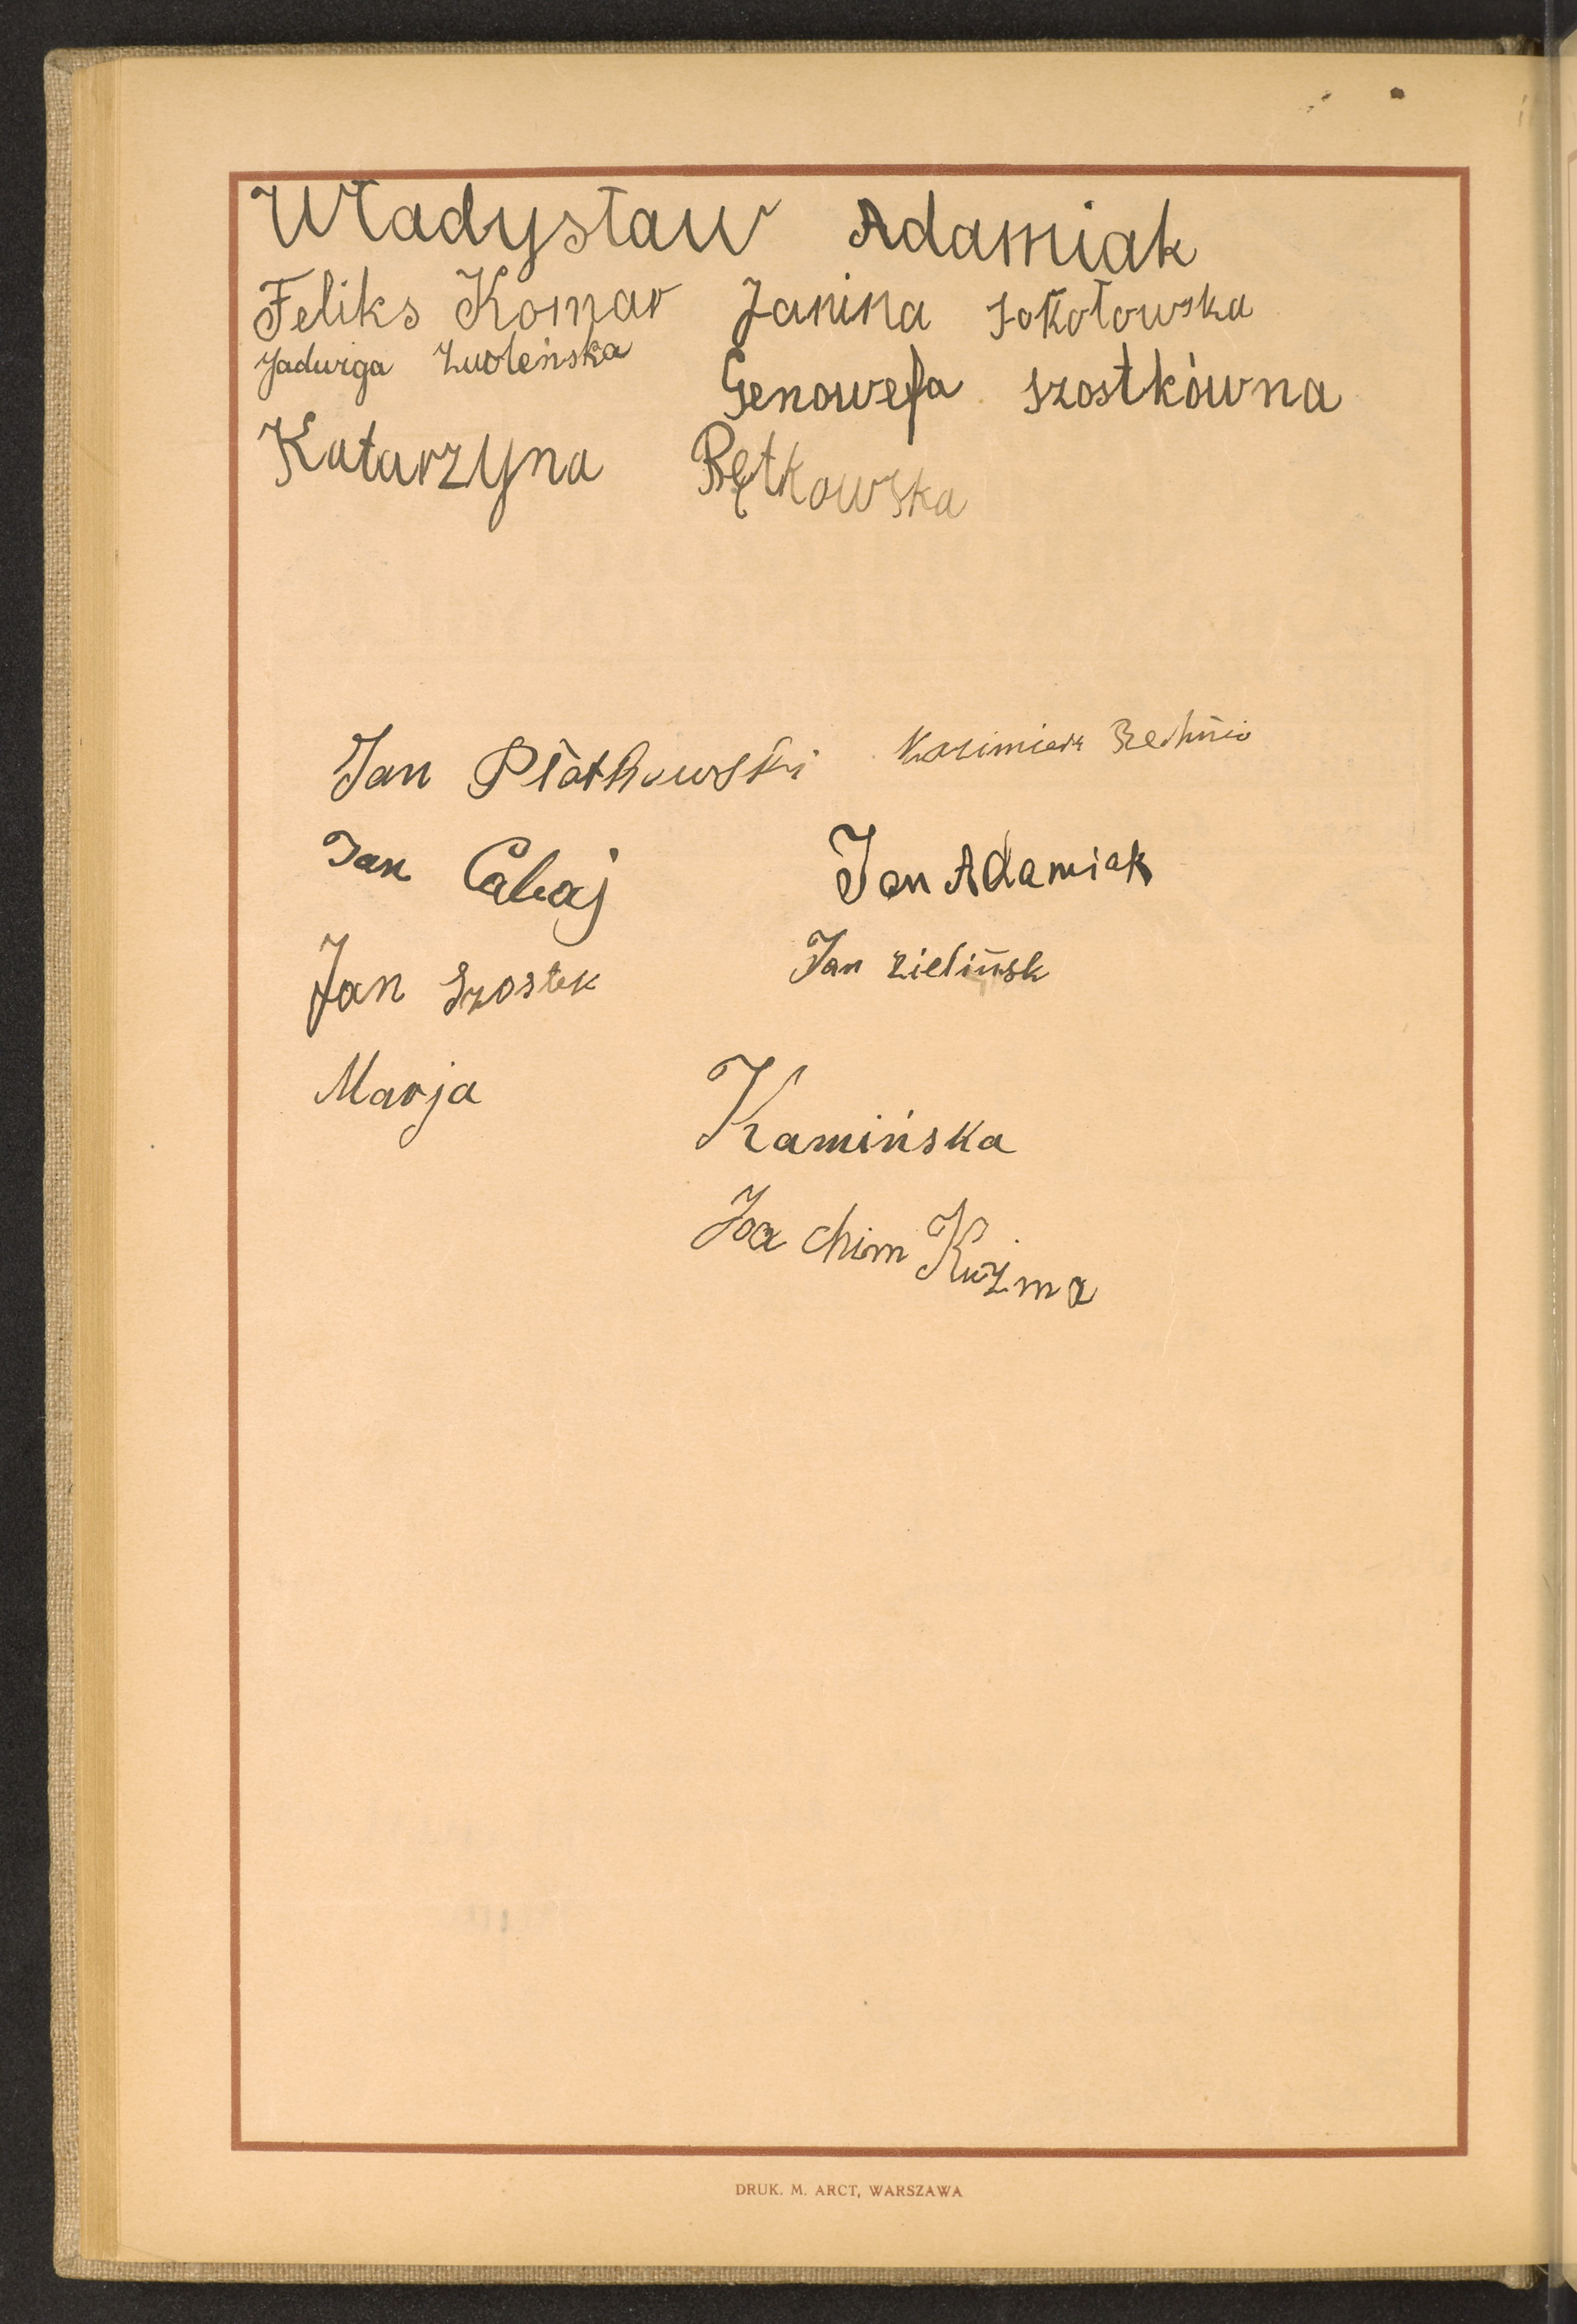 Władysław Adamiak
Feliks Komar Janina Sokołowska
Jadwiga Zwoleńska Genowefa Szostkówna
Katarzyna Rętkowska
Jan Piątkowski Kazimierz
Jan Cabaj Jan Adamiak
Jan Szostek Jan Zielińsk
Marja Kamińska
Joachim Kuźma
DRUK. M. ARCT, WARSZAWA